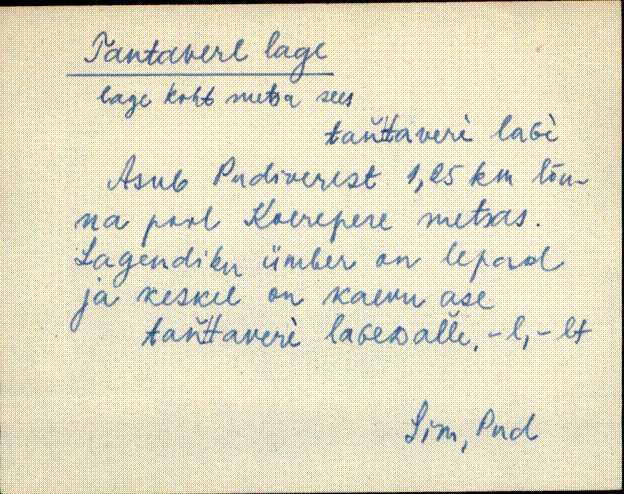 Tantavere lage
lage koht metsa sees
tan̆ttaverè laGè
Asub Pudiverest 1,25 km lõu-
na pool Koerepere metsas.
Lagendiku ümber on lepad
ja keskel on kaevu ase
tan̆ttaverè laGeDalle, -l, -lt
Sim, Pud